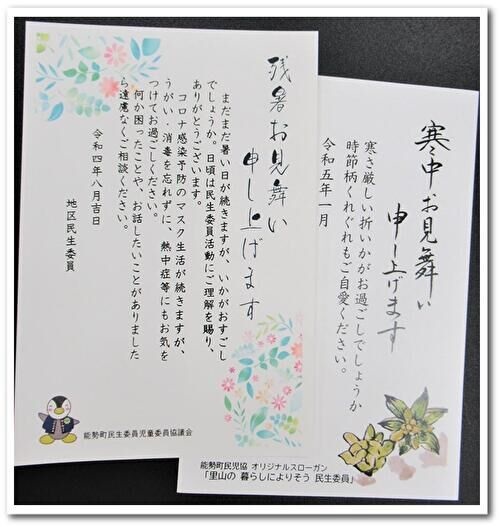 残暑お見舞い
申し上げます
まだまだ暑い日が続きますが、いかがおすごし
でしょうか。日頃は民生委員活動にご理解を賜り、
ありがとうございます。
コロナ感染予防のマスク生活が続きますが、
うがい、消毒を忘れずに、熱中症等にもお気を
つけてお過ごしください。
何か困ったことや、お話したいことがありました
ら遠慮なくご相談ください。
令和四年八月吉日
地区民生委員
能勢町民生委員児童委員協議会
寒中お見舞い
申し上げます
寒さ厳しい折いかがお過ごしでしょうか
時節柄くれぐれもご自愛ください。
令和五年一月
能勢町民児協 オリジナルスローガン
「里山の 暮らしによりそう 民生委員」